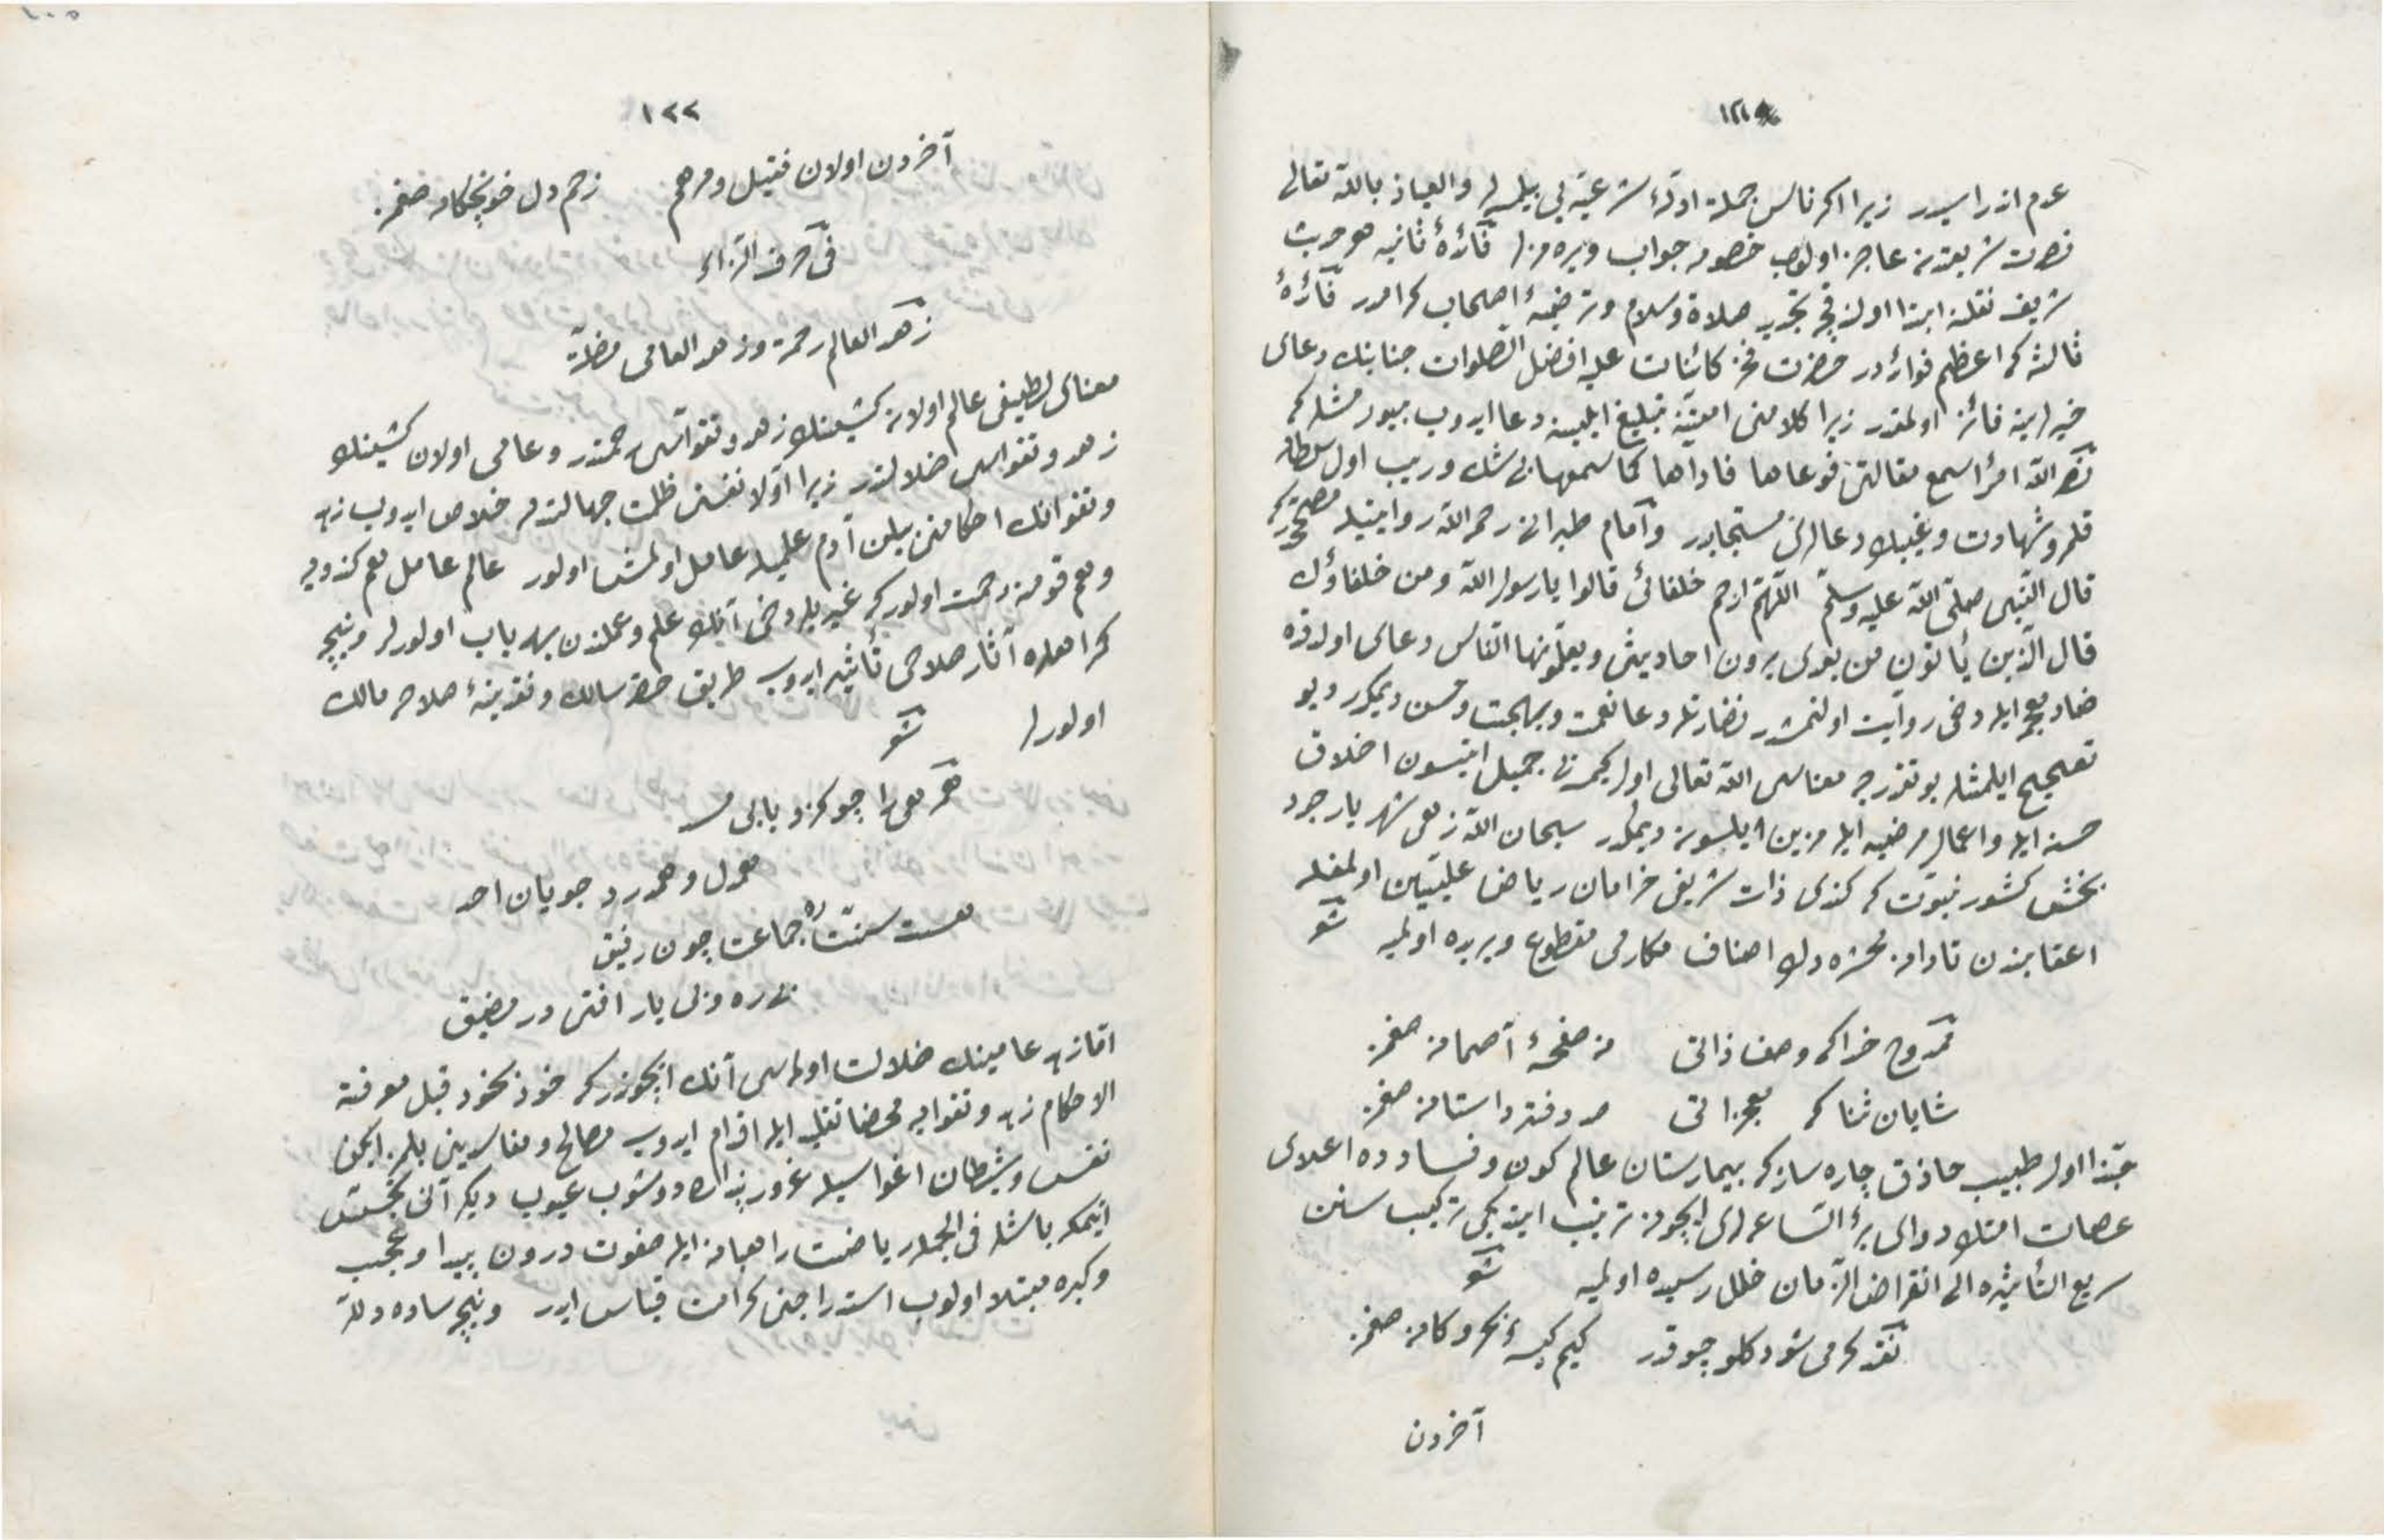 ١٢١
عدم اندراسیدر زیرا اکر ناس جمله ادلهٔ شرعیه یی بیلمسه لر والعیاذ بالله تعالی
نصرت شریعتدن عاجز اولوب خصمه جواب ویره مزلر فائدهٔ ثانیه هر حدیث
شریف نقلنه ابتدا اولندقجه تجدید صلاة وسلام وترضیهٔ اصحاب کرامدر فائدهٔ
ثالثه که اعظم فوائددر حضرت فخر کائنات علیه افضل الصلوات جنابنك دعای
خیرلرینه فائز اولمقدر زیرا کلامنی امتنه تبلیغ ایلینه دعا ایدوب بیورمشلر که
نضر الله امرأ سمع مقالتی فوعاها فاداها کما سمعها بی شك وریب اول سلطان
قلمرو شهادت وغیبك دعالری مستجابدر وامام طبرانی رحمه الله روایتیله مصححدر که
قال النبی صلی الله علیه وسلم اللهم ارحم خلفائی قالوا یا رسول الله ومن خلفاؤك
قال الذین یأتون من بعدی یروون احادیثی ویعلمونها الناس دعای اولده
ضاد معجمه ایله دخی روایت اولنمشدر نضارتله دعا نعمت وبهجت وحسن دیمکدر
تصحیح ایلمشلر بو تقدیرجه معناسی الله تعالی اول کیمسه یی جمیل ایتسون اخلاق
حسنه ایله واعمال مرضیه ایله مزین ایلسون دیمکدر سبحان الله زهی شهریار جود
بخش کشور نبوت که کندی ذات شریفی خرامان ریاض علیین اولمغله
اعقابندن تا دامن محشره دك اصناف مکارمی مقطوع وبریده اولمیه شعر
ممدوح خدا که وصف ذاتی من صفحهٔ آصمانه صغمز
شایان ثنا که معجزاتی صد دفتر داستانه صغمز
حبذا اول طبیب حاذق چاره ساز که بیمارستان عالم کون وفسادده اعلای
عصات امتك دوای برء الساعه لری ایچون ترتیب ایتدیکی ترکیب سنن
سریع التأثیره الی انقراض الزمان خلل رسیده اولمیه شعر
نقد کرمی شو دکلو چوقدر کیم کیسهٔ بحر وکانه صغمز
آخردن
١٢٢
آخردن اولان فتیل ومرهم زخم دل خونچکانه صغمز
فی حرف الزاء
زهد العالم رحمة وزهد العامی مضلة
معنای لطیفی عالم اولان کشینك زهد وتقواسی رحمتدر وعامی اولان کشینك
زهد وتقواسی ضلالتدر زیرا اولا نفسنی ظلمت جهالتدن خلاص ایدوب زهد
وتقوانك احکامنی بیلن آدم علمیله عامل اولمش اولور عالم عامل هم کندویه
وهم قومنه رحمت اولور که غیریلر دخی آنك علم وعملندن بهره یاب اولورلر ونیچه
کمراهلره آثار صلاحی تأثیر ایدوب طریق حقه سالك ونقدینهٔ صلاحه مالك
اولورلر شعر
همرهی را جو کزو یابی مدد
همدل وهمدرد جویان احد
هست سنت ره جماعت چون رفیق
بی ره وبی یار افتی در مضیق
اما زهد عامینك ضلالت اولماسی آنك ایچوندر که خود بخود قبل معرفة
الاحکام زهد وتقوایه محضا تقلید ایله اقدام ایدوب مصالح ومفاسدینی بیلمز ایکن
نفس وشیطان اغواسیله غرور پندارده دوشوب عیوب دیکر آنی تجسس
ایتمکه باشلر فی الجمله ریاضت راهبانه ایله صفوت درون پیدا وعجب
وکبره مبتلا اولوب استدراجنی کرامت قیاس ایدر ونیچه ساده دللر